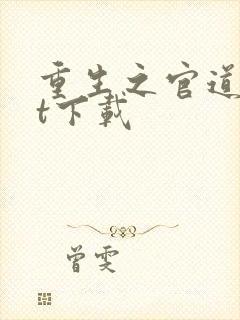 重生之官道
t下载
曾雯